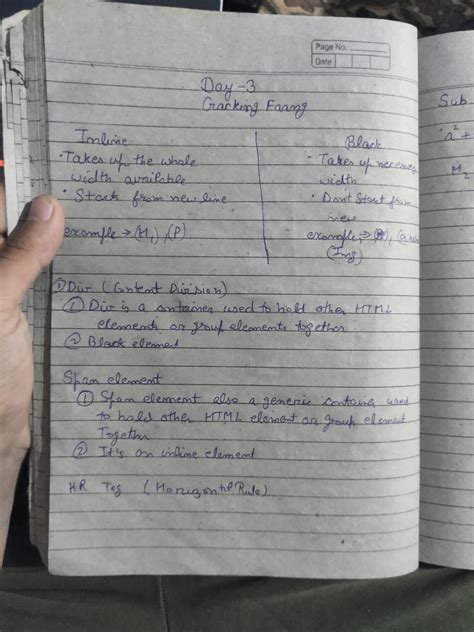 Page No.
Date
Day - 3
Cracking Faang
Inline
• Takes up the whole
width available
• Start from new line
example → (H1), (P)
Block
• Takes up necessary
width
• Dont Start from
new
example →
(Img)
① Div (Content Division)
① Div is a container used to hold other HTML
elements or group elements together
② Block element
Span element
① Span element also a generic container used
to hold other HTML element or group element
Together
② It's an inline element
HR Tag (Horizontal Rule)
Sub
a² +
M2